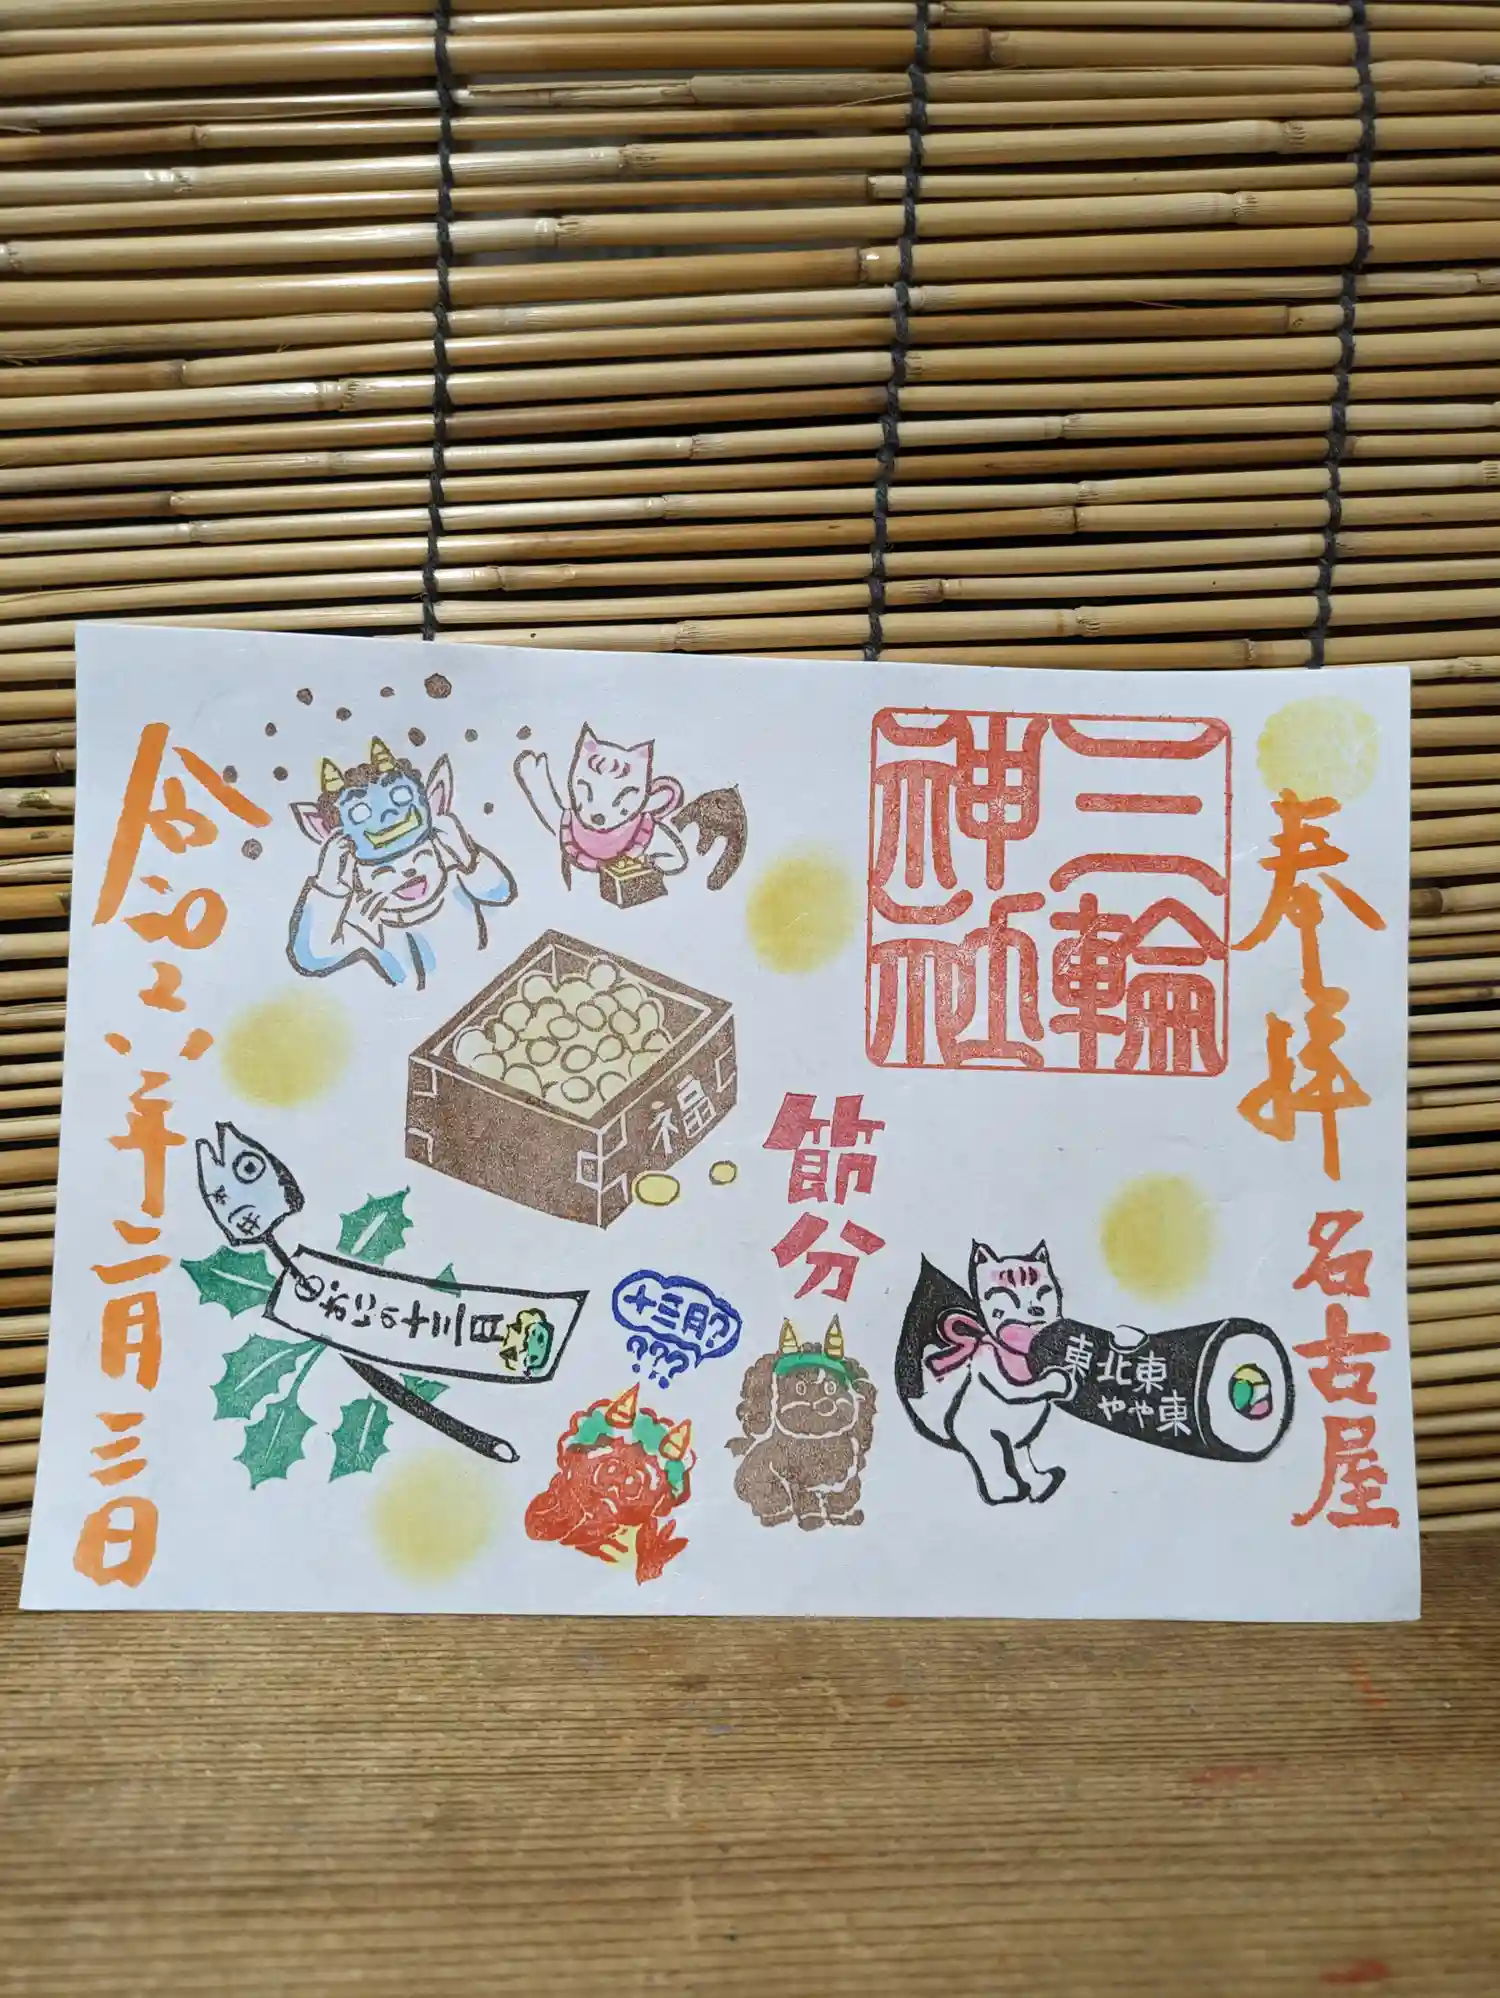 奉拝
名古屋
三輪
神社
節分
東北東
やや東
福
十三月?
???
おにの十三日
令和六年二月三日